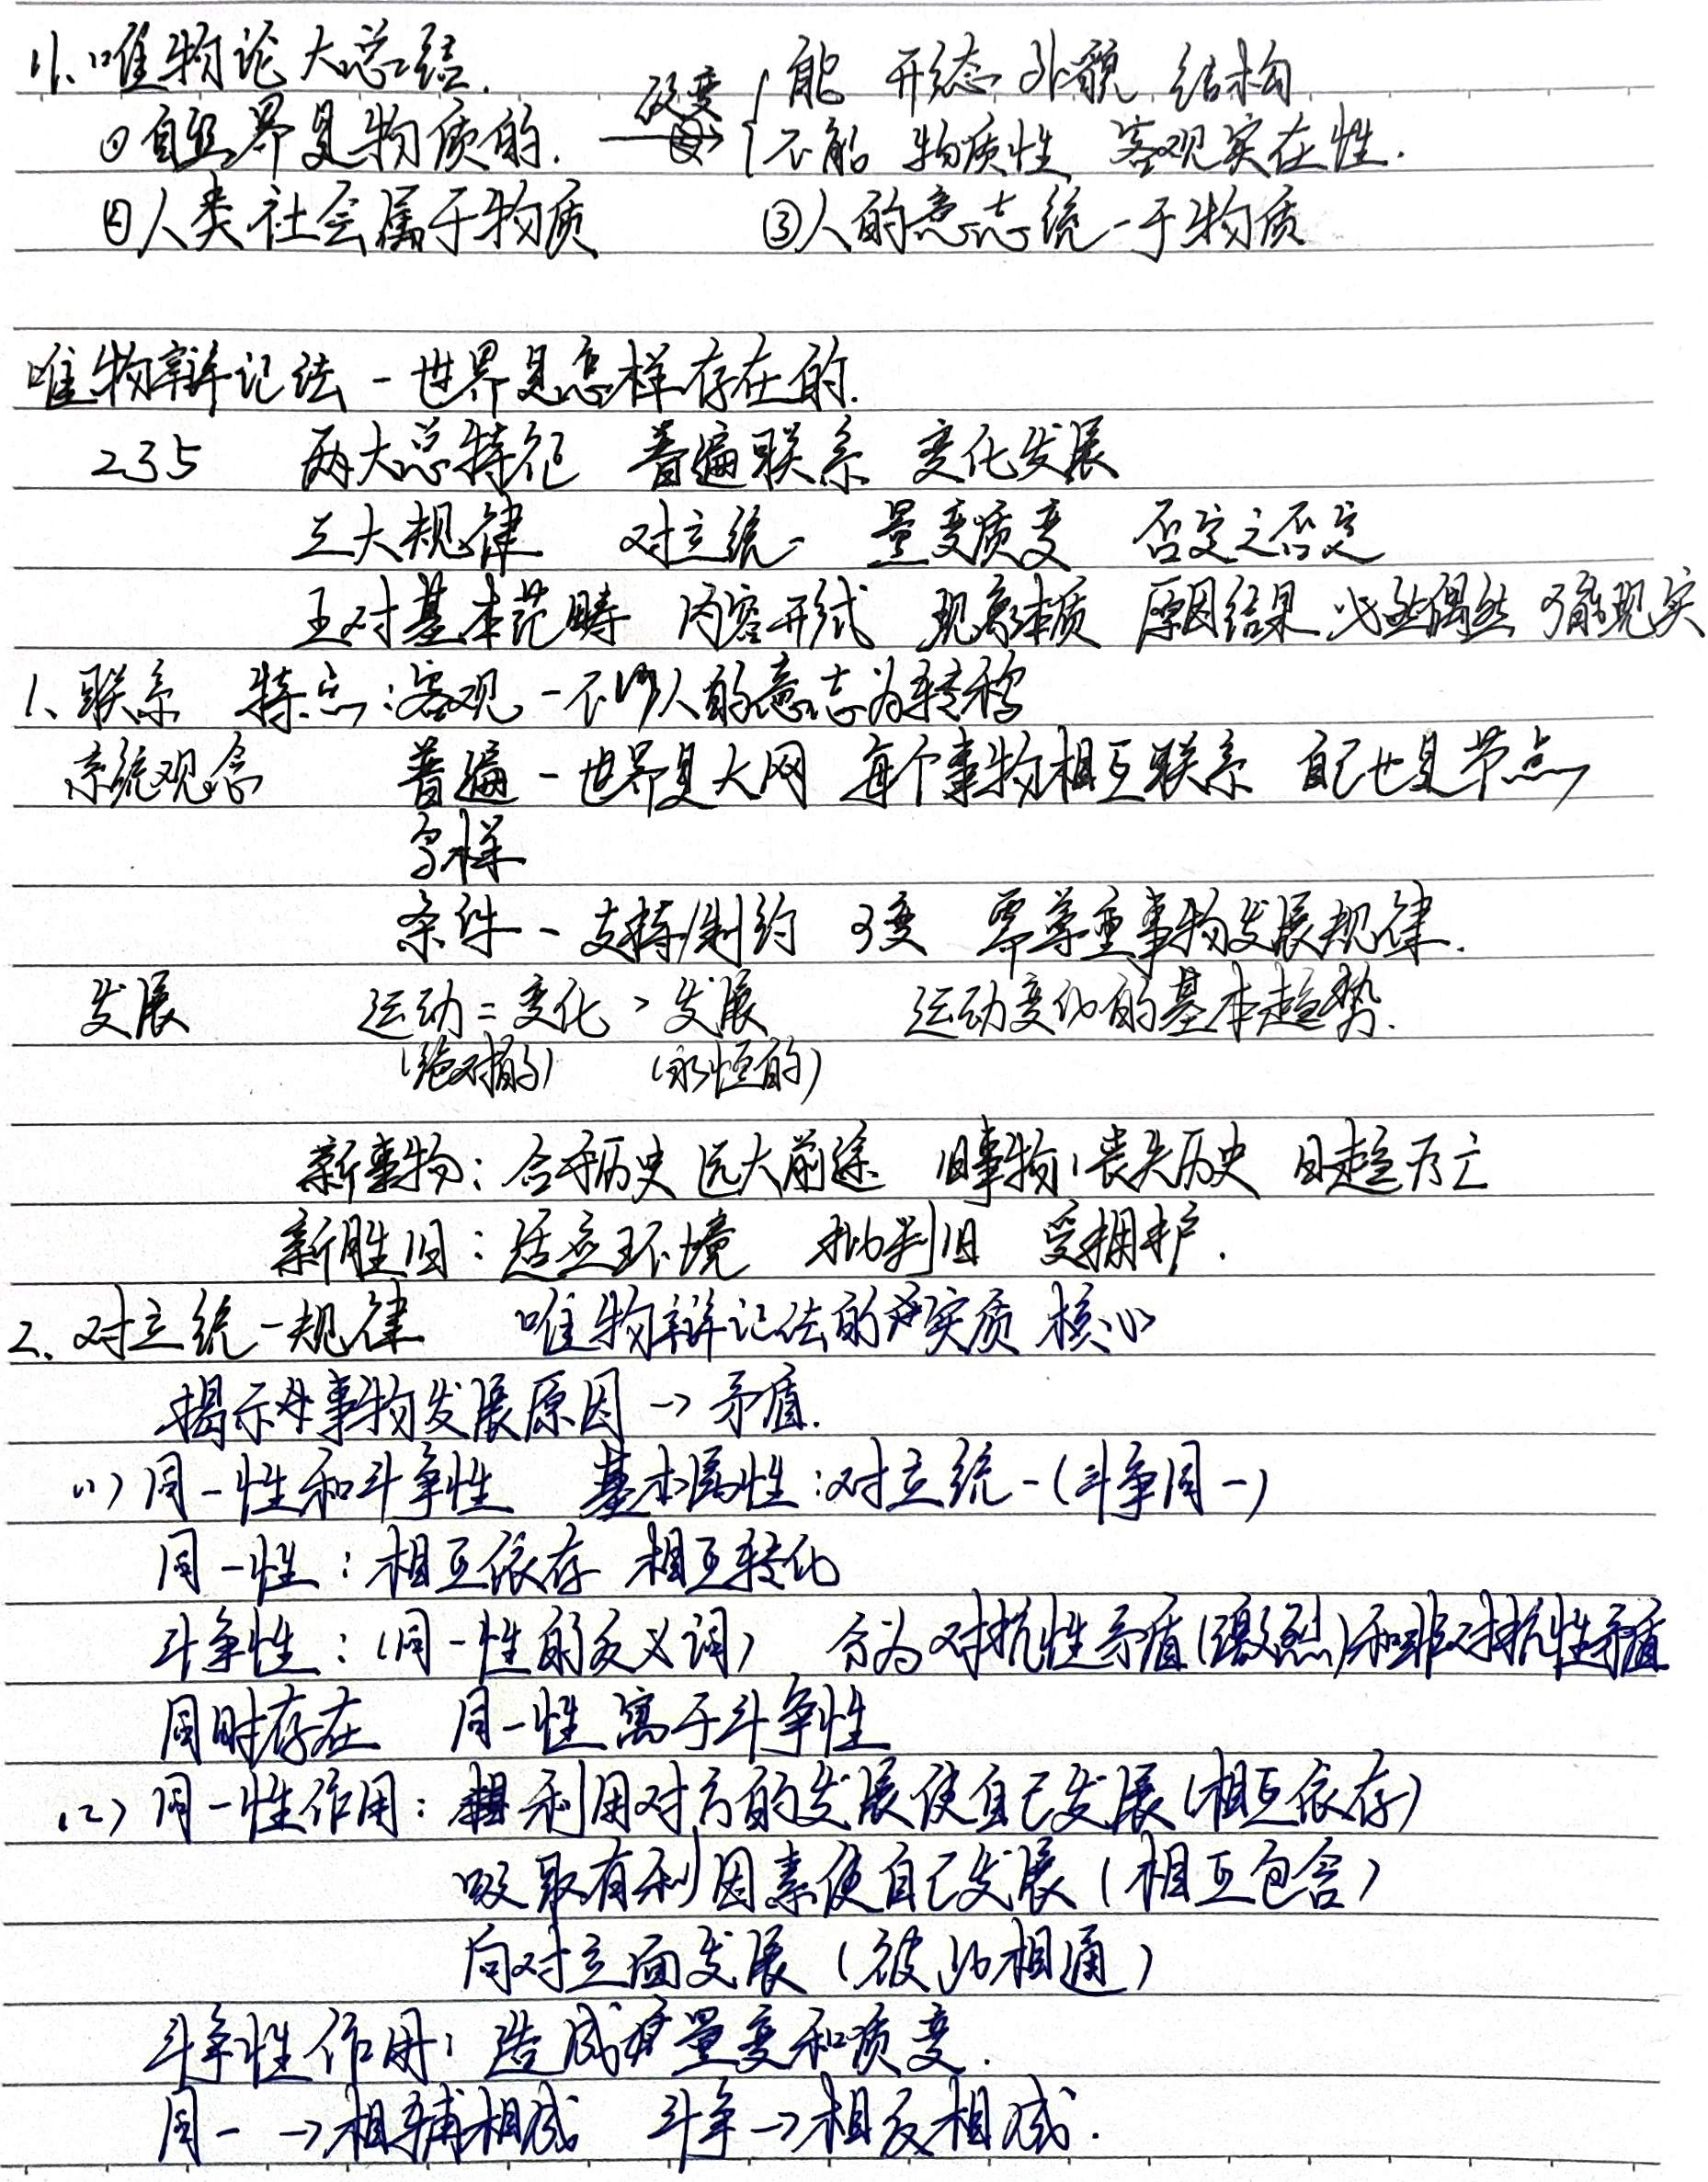 11、唯物论大总结.
①自然界是物质的. 改变→ { 能 形态 外貌 结构
不能 物质性 客观实在性.
②人类社会属于物质 ③人的意志统一于物质
唯物辩记法-世界是怎样存在的.
235 两大总特征 普遍联系 变化发展
三大规律 对立统一 量变质变 否定之否定
五对基本范畴 内容形式 现象本质 原因结果 必然偶然 可能现实
1、联系 特点:客观-不以人的意志为转移
系统观念 普遍-世界是大网 每个事物相互联系 自己也是节点
多样
条件-支持/制约 可变 要尊重事物发展规律.
发展 运动=变化>发展 运动变化的基本趋势.
(绝对的) (永恒的)
新事物:合乎历史 远大前途 旧事物:丧失历史 日趋灭亡
新胜旧:适应环境 批判旧 受拥护.
2、对立统一规律 唯物辩记法的实质 核心
揭示事物发展原因→矛盾.
(1)同一性和斗争性 基本属性:对立统一(斗争同一)
同一性:相互依存 相互转化
斗争性:(同一性的反义词) 分为对抗性矛盾(激烈)和非对抗性矛盾
同时存在 同一性寓于斗争性
(2)同一性作用: 利用对方的发展使自己发展(相互依存)
吸取有利因素使自己发展(相互包含)
向对立面发展(彼此相通)
斗争性作用:造成量变和质变.
同一→相辅相成 斗争→相反相成.